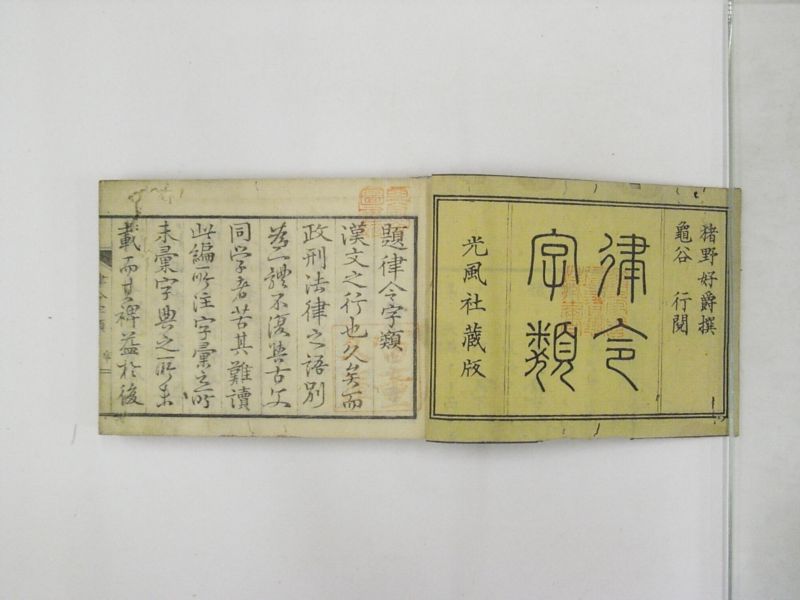 猪野好爵撰
龜谷 行閲
律令
字類
光風社蔵版
題律令字類
漢文之行也久矣而
政刑法律之語別
為一體不復與古文
同学者苦其難讀
此編所注字彙之所
未彙字典之所未
載而其裨益於後